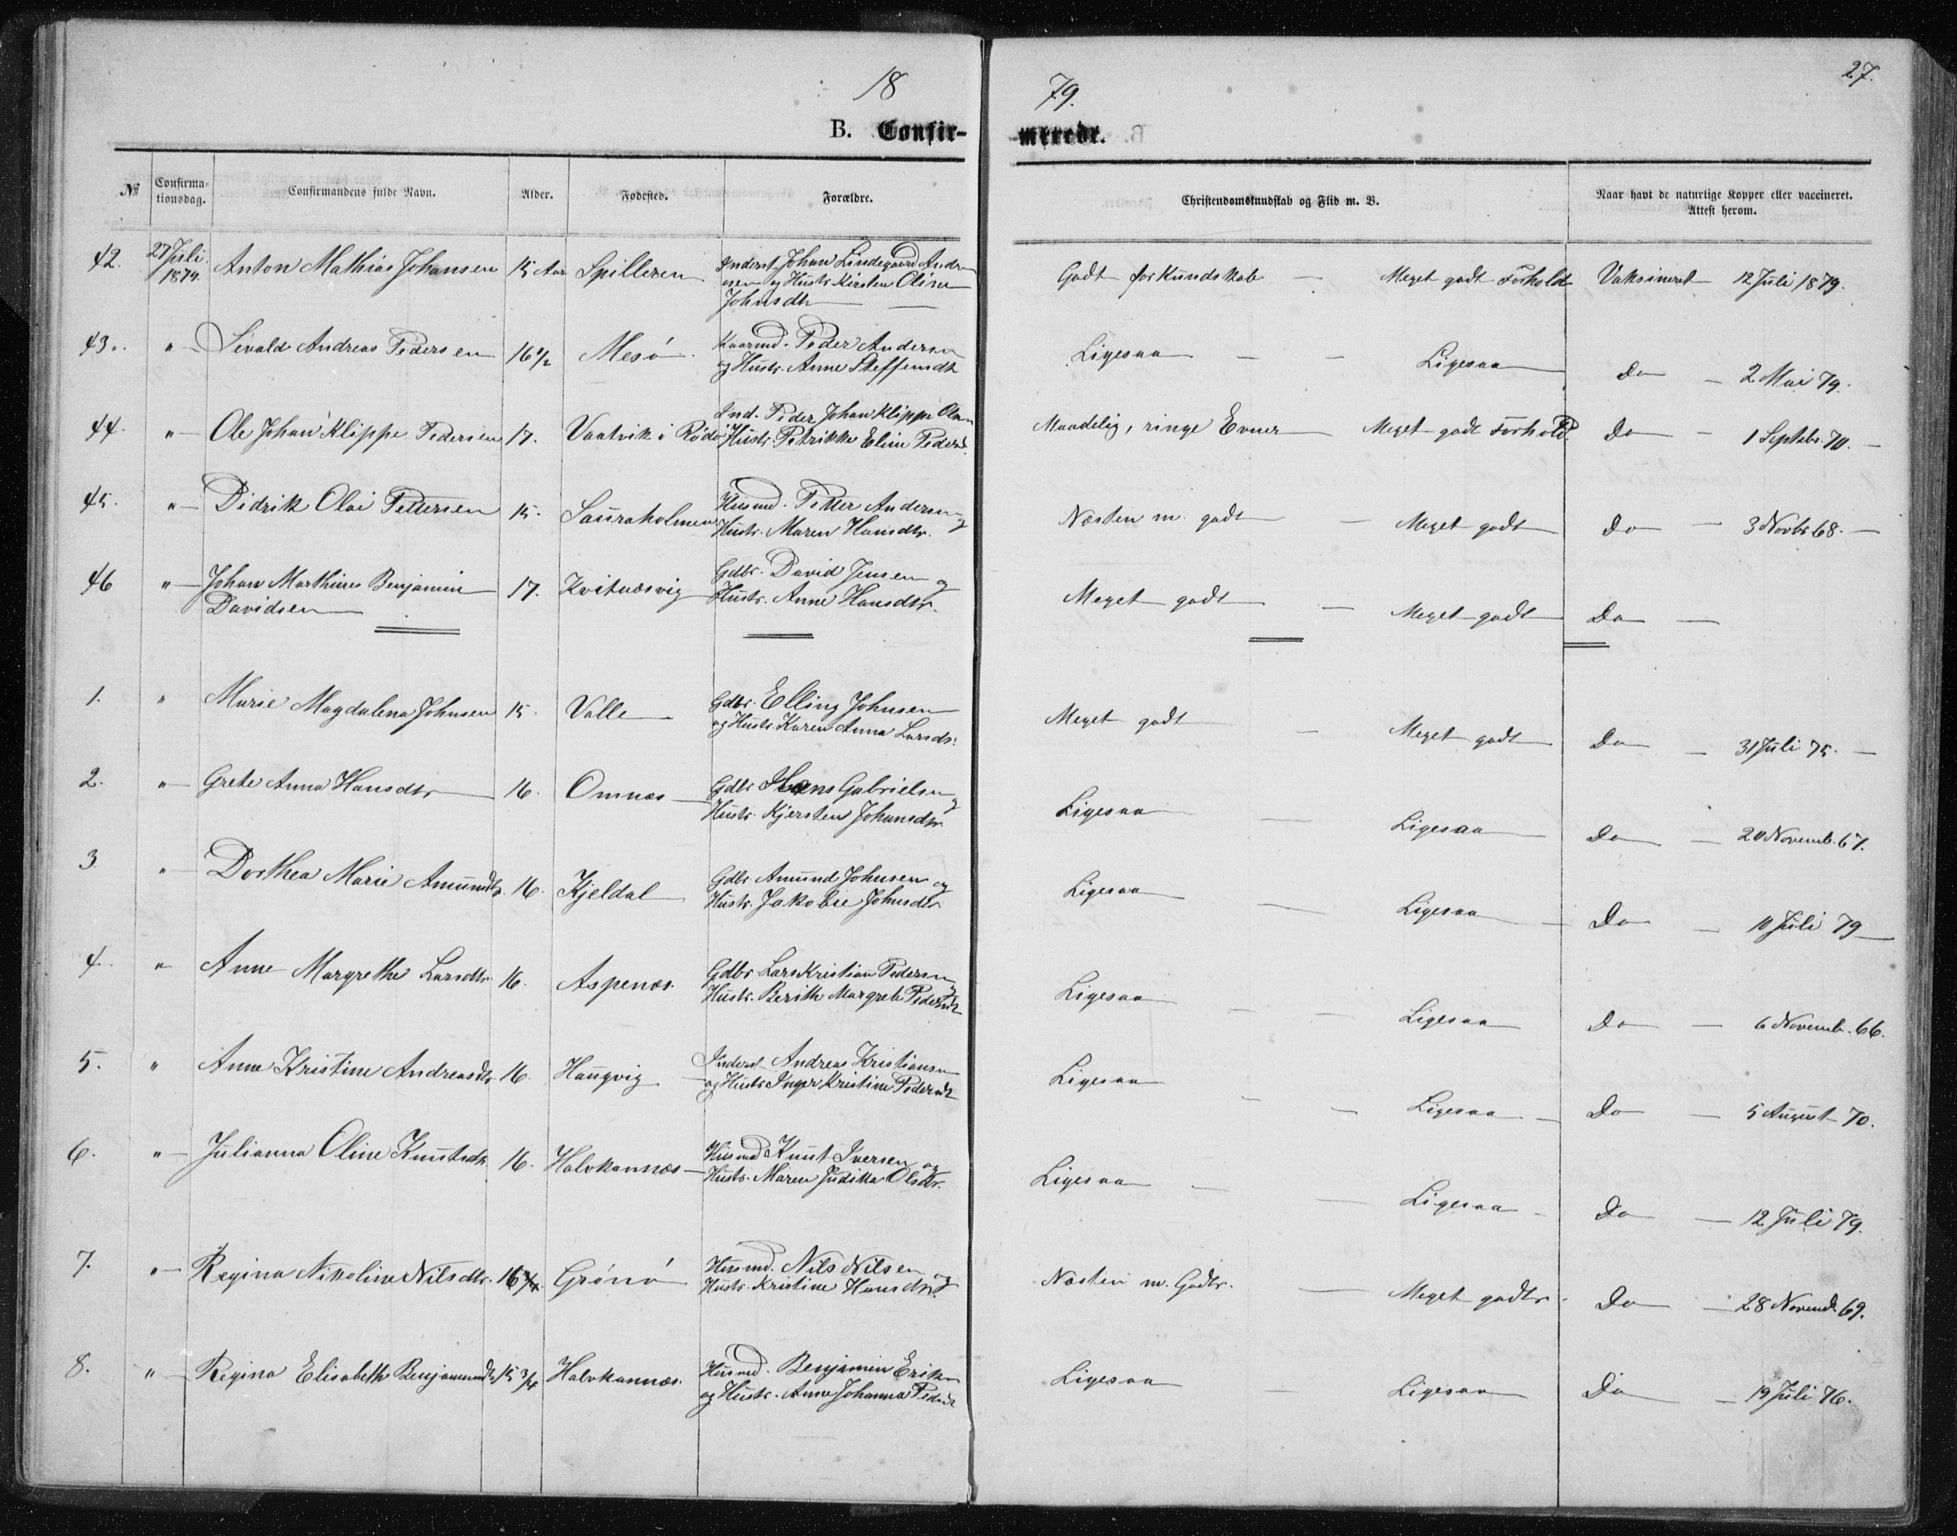 18
79.
27.
B. Confir-
merede.
№ Confirma-tionsdag. Confirmandens fulde Navn. Alder. Fødested. Forældre. Christendomskundskab og Flid m. V. Naar havt de naturlige Kopper eller vaccineret. Attest herom.
42. 27 Juli 1879. Anton Mathias Johansen 15 Aar Spilleren Inderst Johan Lindegaard Andre
sen og Hustr. Kirsten Oline
Johnsdtr Godt for Kundskab — Meget godt Forhold Vaksineret 12 Juli 1879.
43. " Sivald Andreas Pedersen 16 1/2 Mesø Kaarmd. Peder Andersen
og Hustr. Anne Steffensdtr Ligesaa — — Ligesaa Do — 2 Mai 79.
44. " Ole Johan Klippe Pedersen 17. Vaatvik i Rødø Ind. Peder Johan Klippe Olsen
Hustr. Petrikke Elen Pedersd. Maadelig, ringe Evner Meget godt Forhold. Do — 1 Septebr. 70.
45. " Didrik Olai Pettersen 15. Sauraholmen Husmd. Petter Andersen og
Hustr. Maren Hansdtr. Næsten m. godt — Meget godt Do — 3 Novbr 68.
46 " Johan Marthines Benjamin
Davidsen 17. Kvitnæsvig Gdbr. David Jensen og
Hustr. Anne Hansdtr. Meget godt — Meget godt Do —
1. " Marie Magdalena Johnsen 15. Valle Gdbr. Elling Johnsen
og Hustr Karen Anna Larsdr. Meget godt — Meget godt Do — 31 Juli 75.
2. " Grete Anna Hansdtr 16. Omnæs Gdbr Hans Gabrielsen og
Hustr. Kjersten Johansdtr Ligesaa — Ligesaa Do — 20 Novemb. 67.
3 " Dorthea Marie Amundtr. 16. Kjeldal Gdbr. Amund Johnsen og
Hustr. Jakobie Johnsdtr Ligesaa — Ligesaa — Do — 10 Juli 79
4. " Anne Margrethe Larsdtr 16. Aspenæs Gdbr Lars Kristian Pedersen og
Hustr. Berith Margrete Pedersdtr Ligesaa — — Ligesaa Do — 6 Novemb. 66.
5. " Anne Kristine Andreasdtr. 16. Haugvig Inderst Andreas Kristiansen
og Hustr Inger Kristine Pedersdtr Ligesaa — — Ligesaa — Do — 5 August 70.
6. " Julianna Oline Knutsdtr. 16. Halvkannæs Husmd Knut Iversen og
Hustr. Maren Judikka Olsdtr. Ligesaa — — Ligesaa — Do — 12 Juli 79.
7. " Regina Nikoline Nilsdtr. 16 3/4 Grønø Husmd. Nils Nilsen og
Hustr. Kristine Hansdtr. Næsten m. Godtr. — Meget godtr. Do — 28 Novemb 69.
8. " Regina Elisabeth Benjaminsdtr 15 3/4 Halvkannæs. Husmd. Benjamin Eriksen
og Hustr. Anne Johanna Pedersdtr Ligesaa — Ligesaa Do — 19 Juli 76.